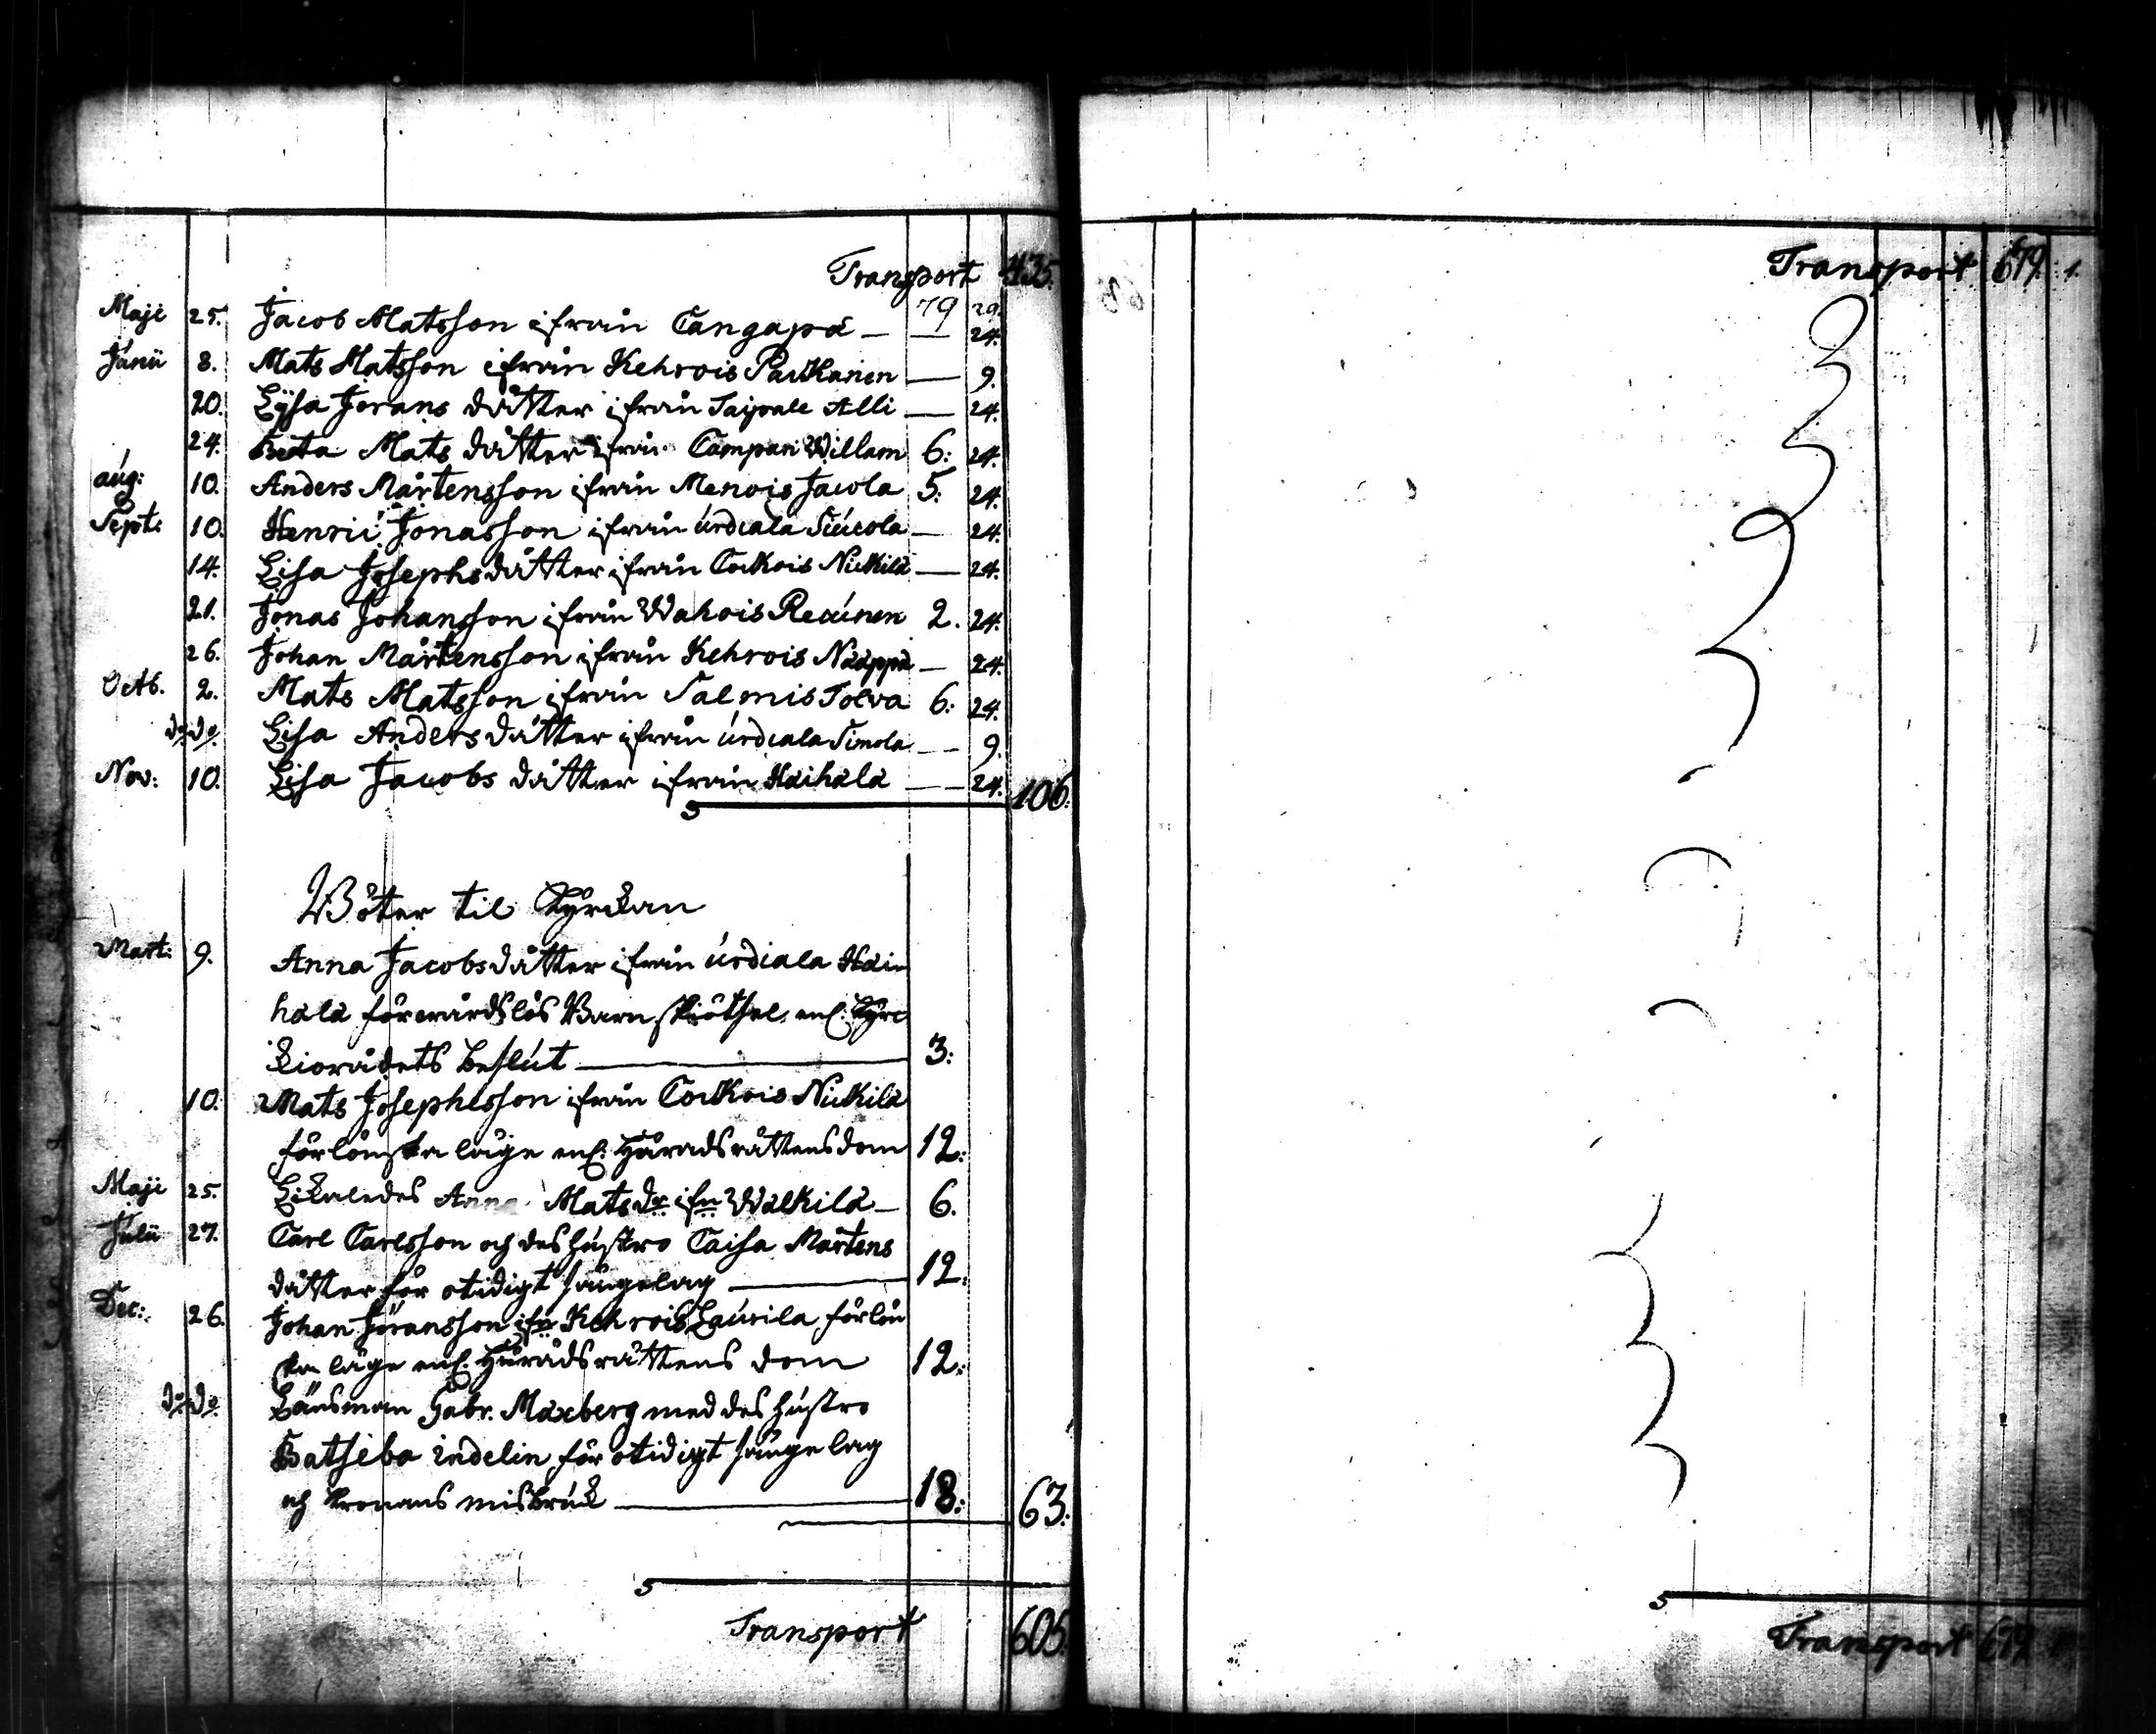 Transport 435.
79 29.
Maji 25. Jacob Matsson ifrån Cangapä — — 24.
Junii 8. Mats Matsson ifrån Kehrois Parkkanen — 9.
20. Lijsa Jörans dåtter ifrån Taipale Alli — 24.
24. Beata Mats dåtter ifrån Campari Willam 6: 24.
aug: 10. Anders Mårtensson ifrån Menois Jacola 5. 24.
Sept: 10. Henric Jonasson ifrån urdiala — 24.
14. Lisa Josephsdåtter ifrån Cockois Nickilä — 24.
21. Jonas Johansson ifrån Wahois Recunen 2. 24.
26. Johan Mårtensson ifrån Kehrois Nääppä — 24.
Octb. 2. Mats Matsson ifrån Salmis Tolva 6: 24.
do do Lisa Anders dåtter ifrån urdiala Simola — 9.
Nov: 10. Lisa Jacobs dåtter ifrån Haihala — 24. 106.
Böter til Kyrckan
Mart: 9. Anna Jacobsdåtter ifrån urdiala Hai
hala för wårdslös Barn skjötsel enl. Kyrc
kiorådets beslut — 3:
10. Mats Josephsson ifrån Cockois Nickilä
för lönska läge enl. Häradsrättens dom 12:
Maji 25. Likaledes Anna Matsdr ifn Walkila — 6.
Julii 27. Carl Carlsson och des hustro Caisa Mårtens
dåtter för otidigt sängelag — 12:
Dec: 26. Johan Jöransson ifn Kehrois Laurila för lön
ska läge enl. Häradsrättens dom 12:
do do Länsman Gabr. Maxberg med des hustro
Batseba indelin för otidigt sängelag
och kronans misbruk — 18: 63.
Transport 605.
Transport 679. 1.
Transport 679. 1